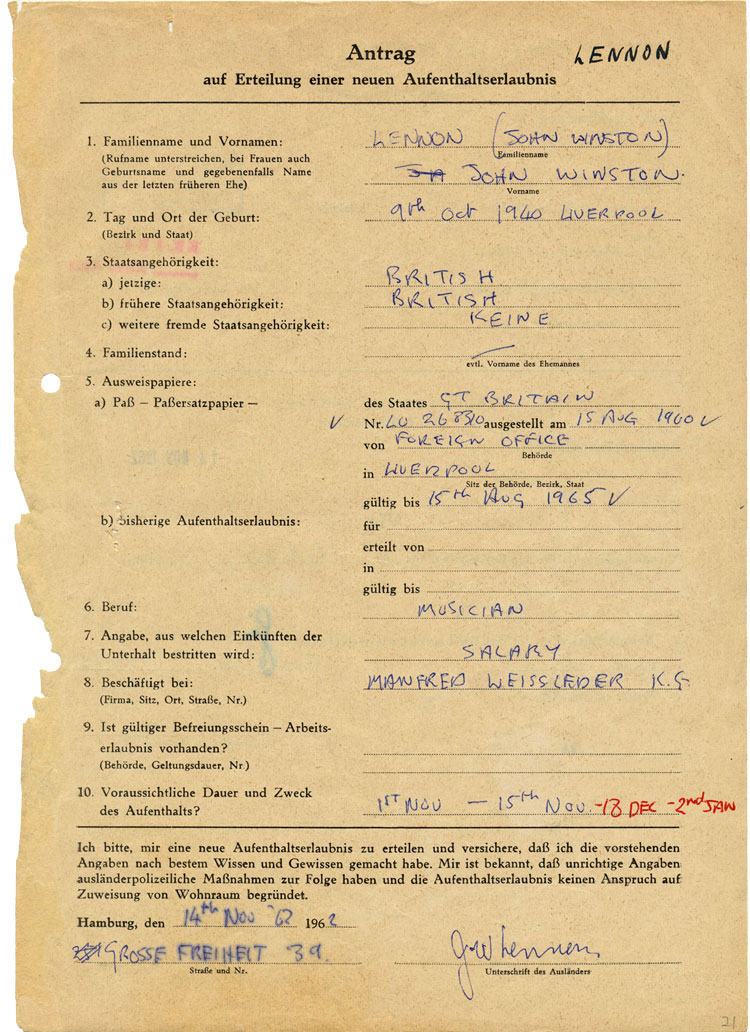 Antrag LENNON
auf Erteilung einer neuen Aufenthaltserlaubnis
1. Familienname und Vornamen: LENNON (JOHN WINSTON)
(Rufname unterstreichen, bei Frauen auch Familienname
Geburtsname und gegebenenfalls Name JOHN WINSTON.
aus der letzten früheren Ehe) Vorname
2. Tag und Ort der Geburt: 9th Oct 1940 LIVERPOOL
(Bezirk und Staat)
3. Staatsangehörigkeit:
a) jetzige: BRITISH
b) frühere Staatsangehörigkeit: BRITISH
c) weitere fremde Staatsangehörigkeit: KEINE
4. Familienstand:
evtl. Vorname des Ehemannes
5. Ausweispapiere:
a) Paß – Paßersatzpapier – des Staates GT BRITAIN
Nr. LO 268310 ausgestellt am 15 AUG 1960
von FOREIGN OFFICE
Behörde
in LIVERPOOL
Sitz der Behörde, Bezirk, Staat
gültig bis 15th AUG 1965
b) bisherige Aufenthaltserlaubnis: für
erteilt von
in
gültig bis
6. Beruf: MUSICIAN
7. Angabe, aus welchen Einkünften der
Unterhalt bestritten wird: SALARY
8. Beschäftigt bei: MANFRED WEISSLEDER K.G.
(Firma, Sitz, Ort, Straße, Nr.)
9. Ist gültiger Befreiungsschein – Arbeits-
erlaubnis vorhanden?
(Behörde, Geltungsdauer, Nr.)
10. Voraussichtliche Dauer und Zweck
des Aufenthalts? 1ST NOV – 15th NOV. -18 DEC - 2nd JAN
Ich bitte, mir eine neue Aufenthaltserlaubnis zu erteilen und versichere, daß ich die vorstehenden
Angaben nach bestem Wissen und Gewissen gemacht habe. Mir ist bekannt, daß unrichtige Angaben
ausländerpolizeiliche Maßnahmen zur Folge haben und die Aufenthaltserlaubnis keinen Anspruch auf
Zuweisung von Wohnraum begründet.
Hamburg, den 14th NOV '62 1962
GROSSE FREIHEIT 39. J W Lennon
Straße und Nr. Unterschrift des Ausländers
21